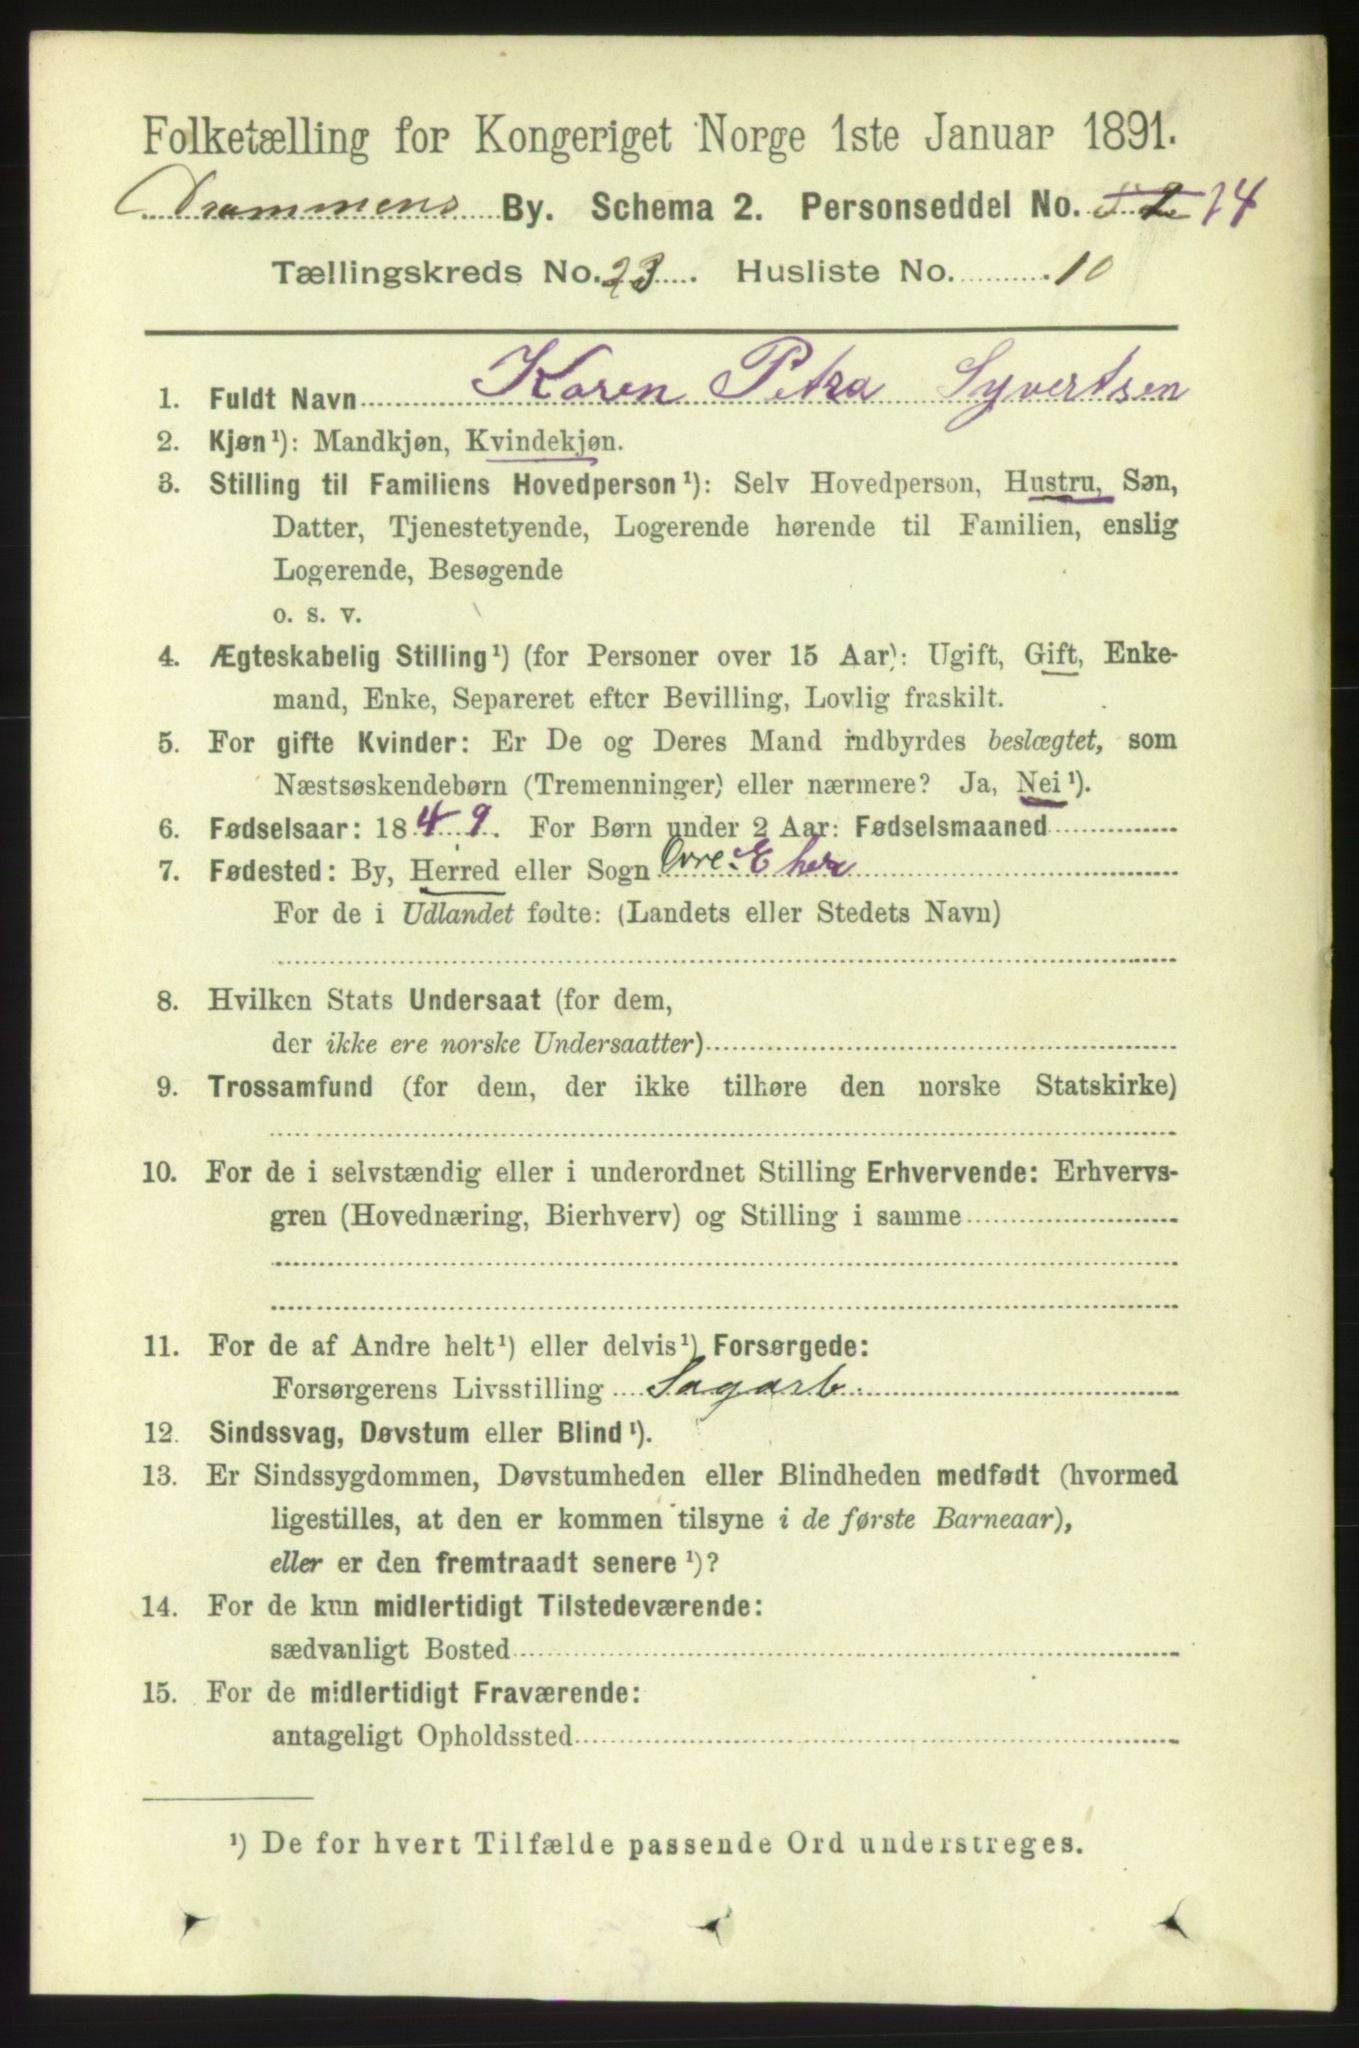 Folketælling for Kongeriget Norge 1ste Januar 1891.
Drammens By. Schema 2. Personseddel No. 14
Tællingskreds No. 23. Husliste No. 10
1. Fuldt Navn Karen Petra Syvertsen
2. Kjøn¹): Mandkjøn, Kvindekjøn.
3. Stilling til Familiens Hovedperson¹): Selv Hovedperson, Hustru, Søn,
Datter, Tjenestetyende, Logerende hørende til Familien, enslig
Logerende, Besøgende
o. s. v.
4. Ægteskabelig Stilling¹) (for Personer over 15 Aar): Ugift, Gift, Enke-
mand, Enke, Separeret efter Bevilling, Lovlig fraskilt.
5. For gifte Kvinder: Er De og Deres Mand indbyrdes beslægtet, som
Næstsøskendebørn (Tremenninger) eller nærmere? Ja, Nei¹).
6. Fødselsaar: 1849. For Børn under 2 Aar: Fødselsmaaned
7. Fødested: By, Herred eller Sogn Øvre Eker
For de i Udlandet fødte: (Landets eller Stedets Navn)
8. Hvilken Stats Undersaat (for dem,
der ikke ere norske Undersaatter)
9. Trossamfund (for dem, der ikke tilhøre den norske Statskirke)
10. For de i selvstændig eller i underordnet Stilling Erhvervende: Erhvervs-
gren (Hovednæring, Bierhverv) og Stilling i samme
11. For de af Andre helt¹) eller delvis¹) Forsørgede:
Forsørgerens Livsstilling Sagarb.
12. Sindssvag, Døvstum eller Blind¹).
13. Er Sindssygdommen, Døvstumheden eller Blindheden medfødt (hvormed
ligestilles, at den er kommen tilsyne i de første Barneaar),
eller er den fremtraadt senere¹)?
14. For de kun midlertidigt Tilstedeværende:
sædvanligt Bosted
15. For de midlertidigt Fraværende:
antageligt Opholdssted
¹) De for hvert Tilfælde passende Ord understreges.